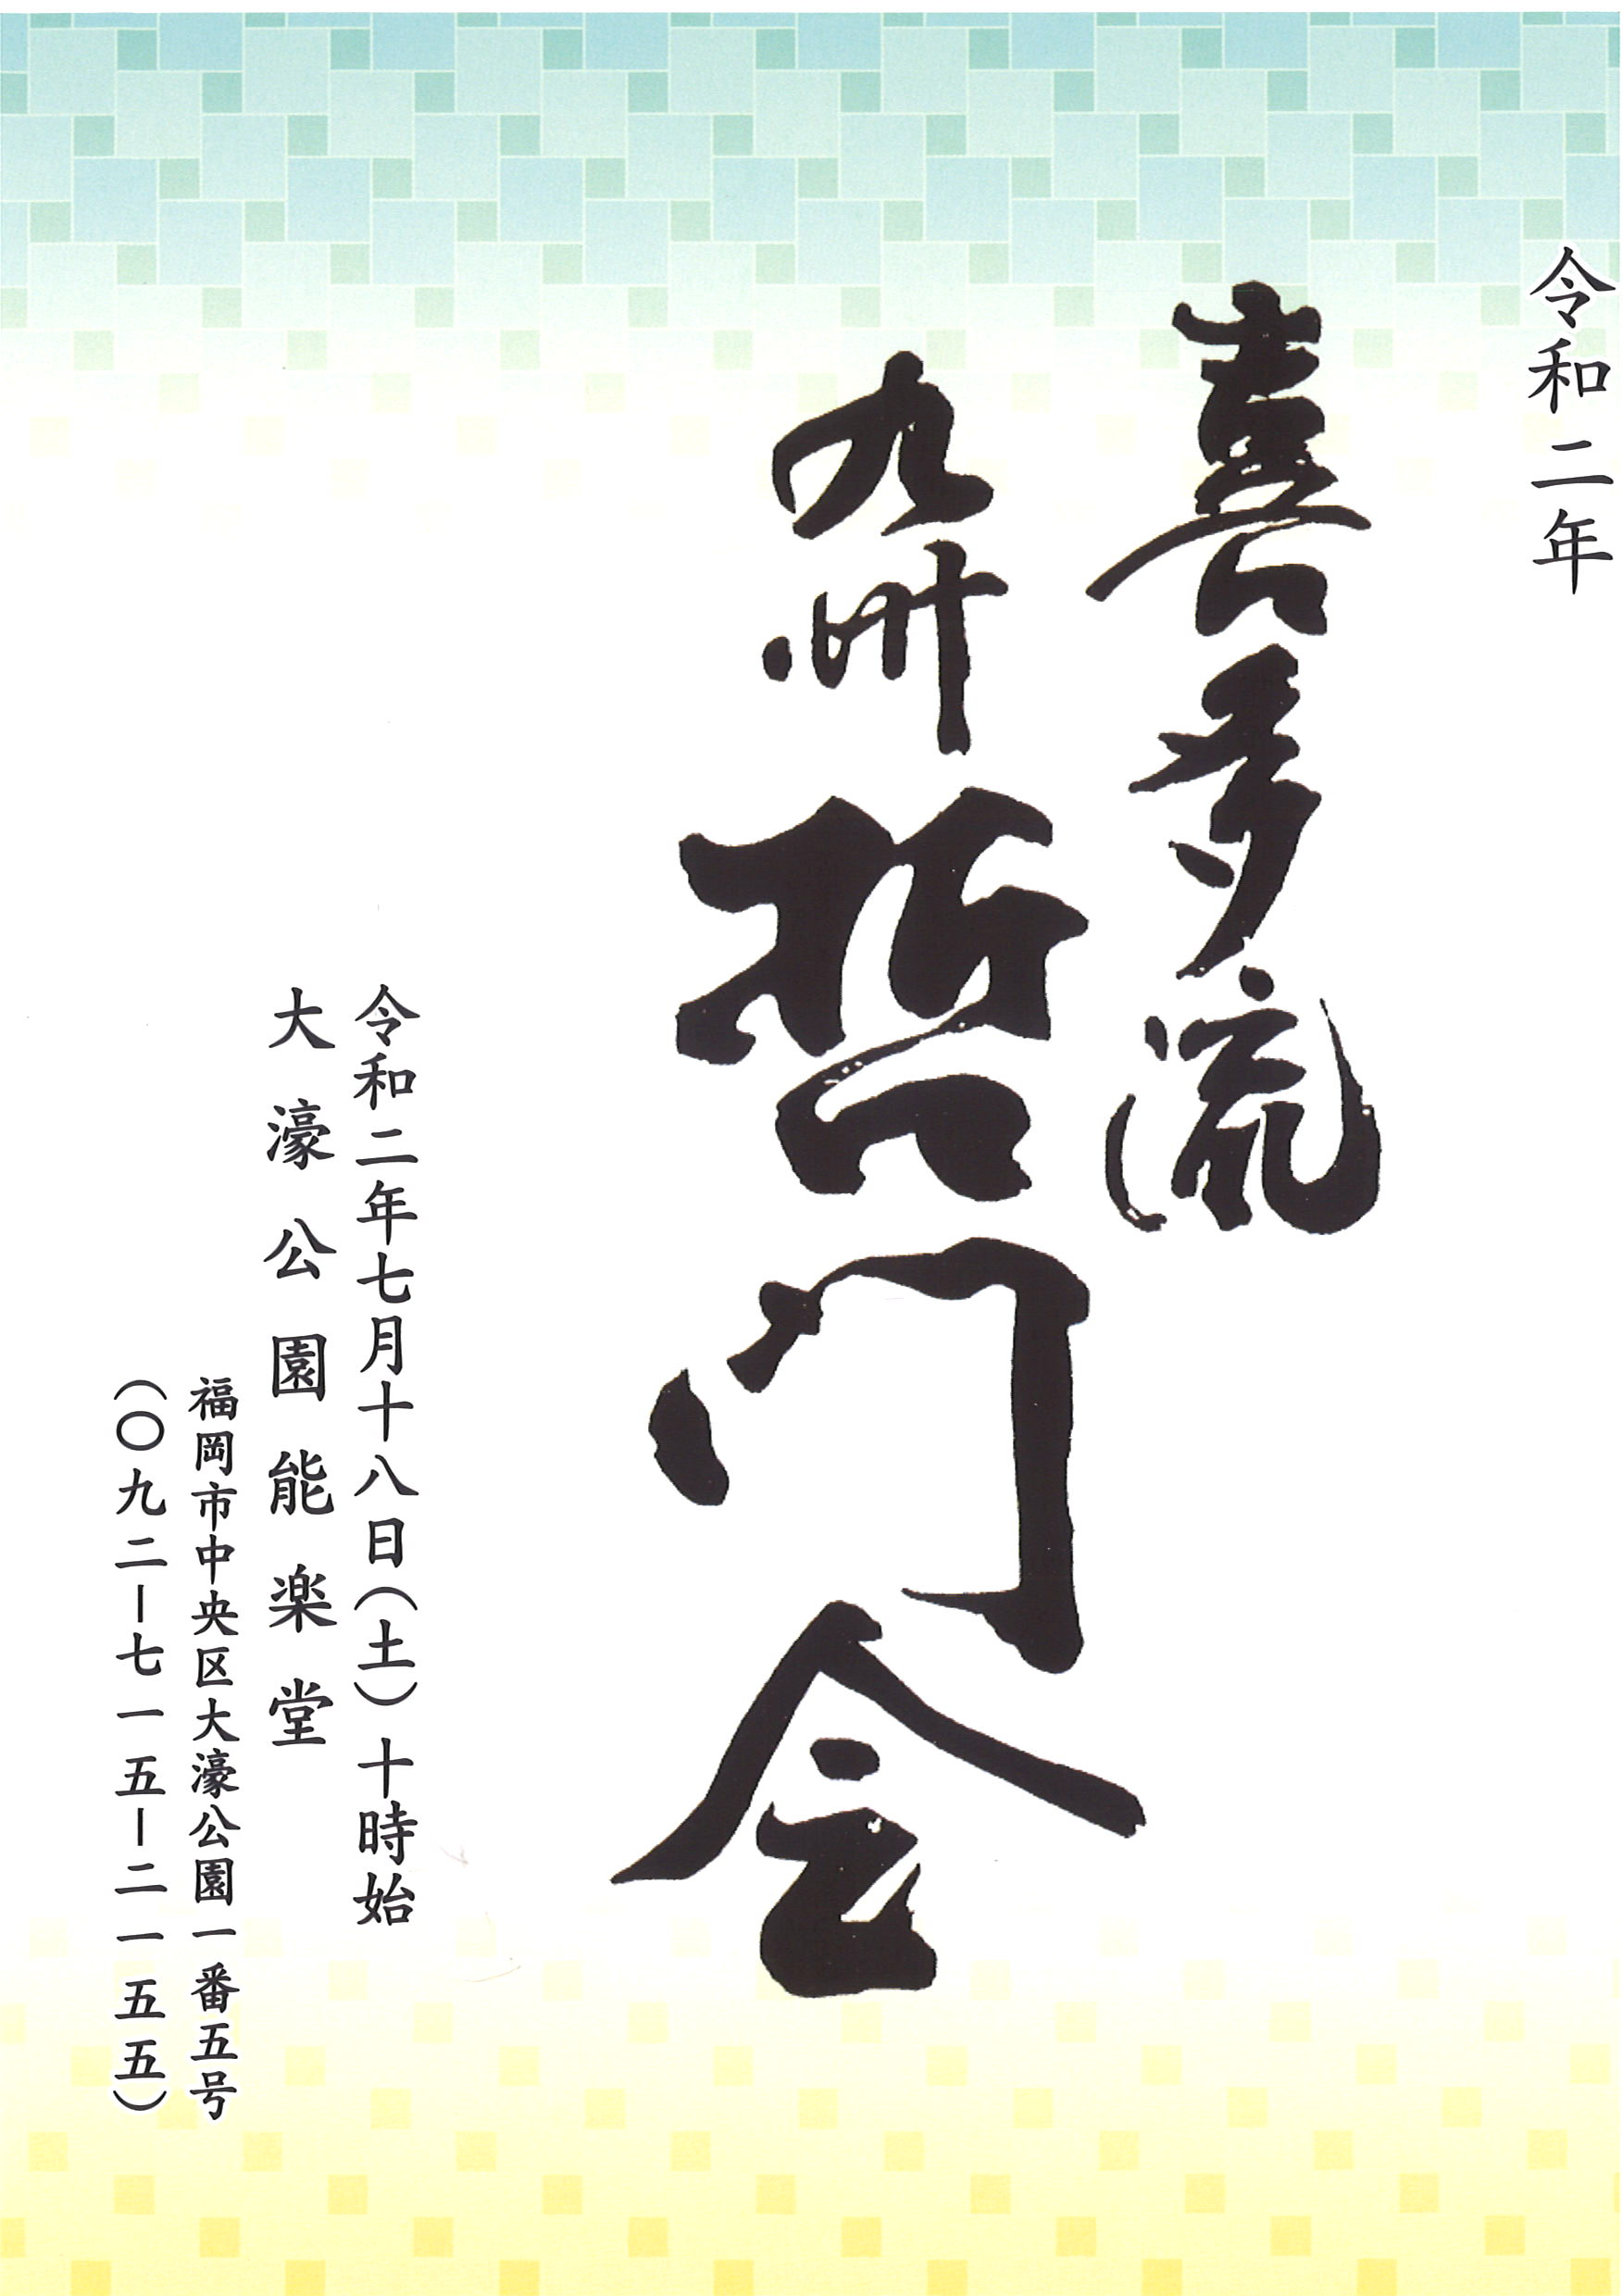 令和二年
喜多流
九州哲門会
令和二年七月十八日(土)十時始
大濠公園能楽堂
福岡市中央区大濠公園一番五号
(〇九二ー七一五ー二一五五)